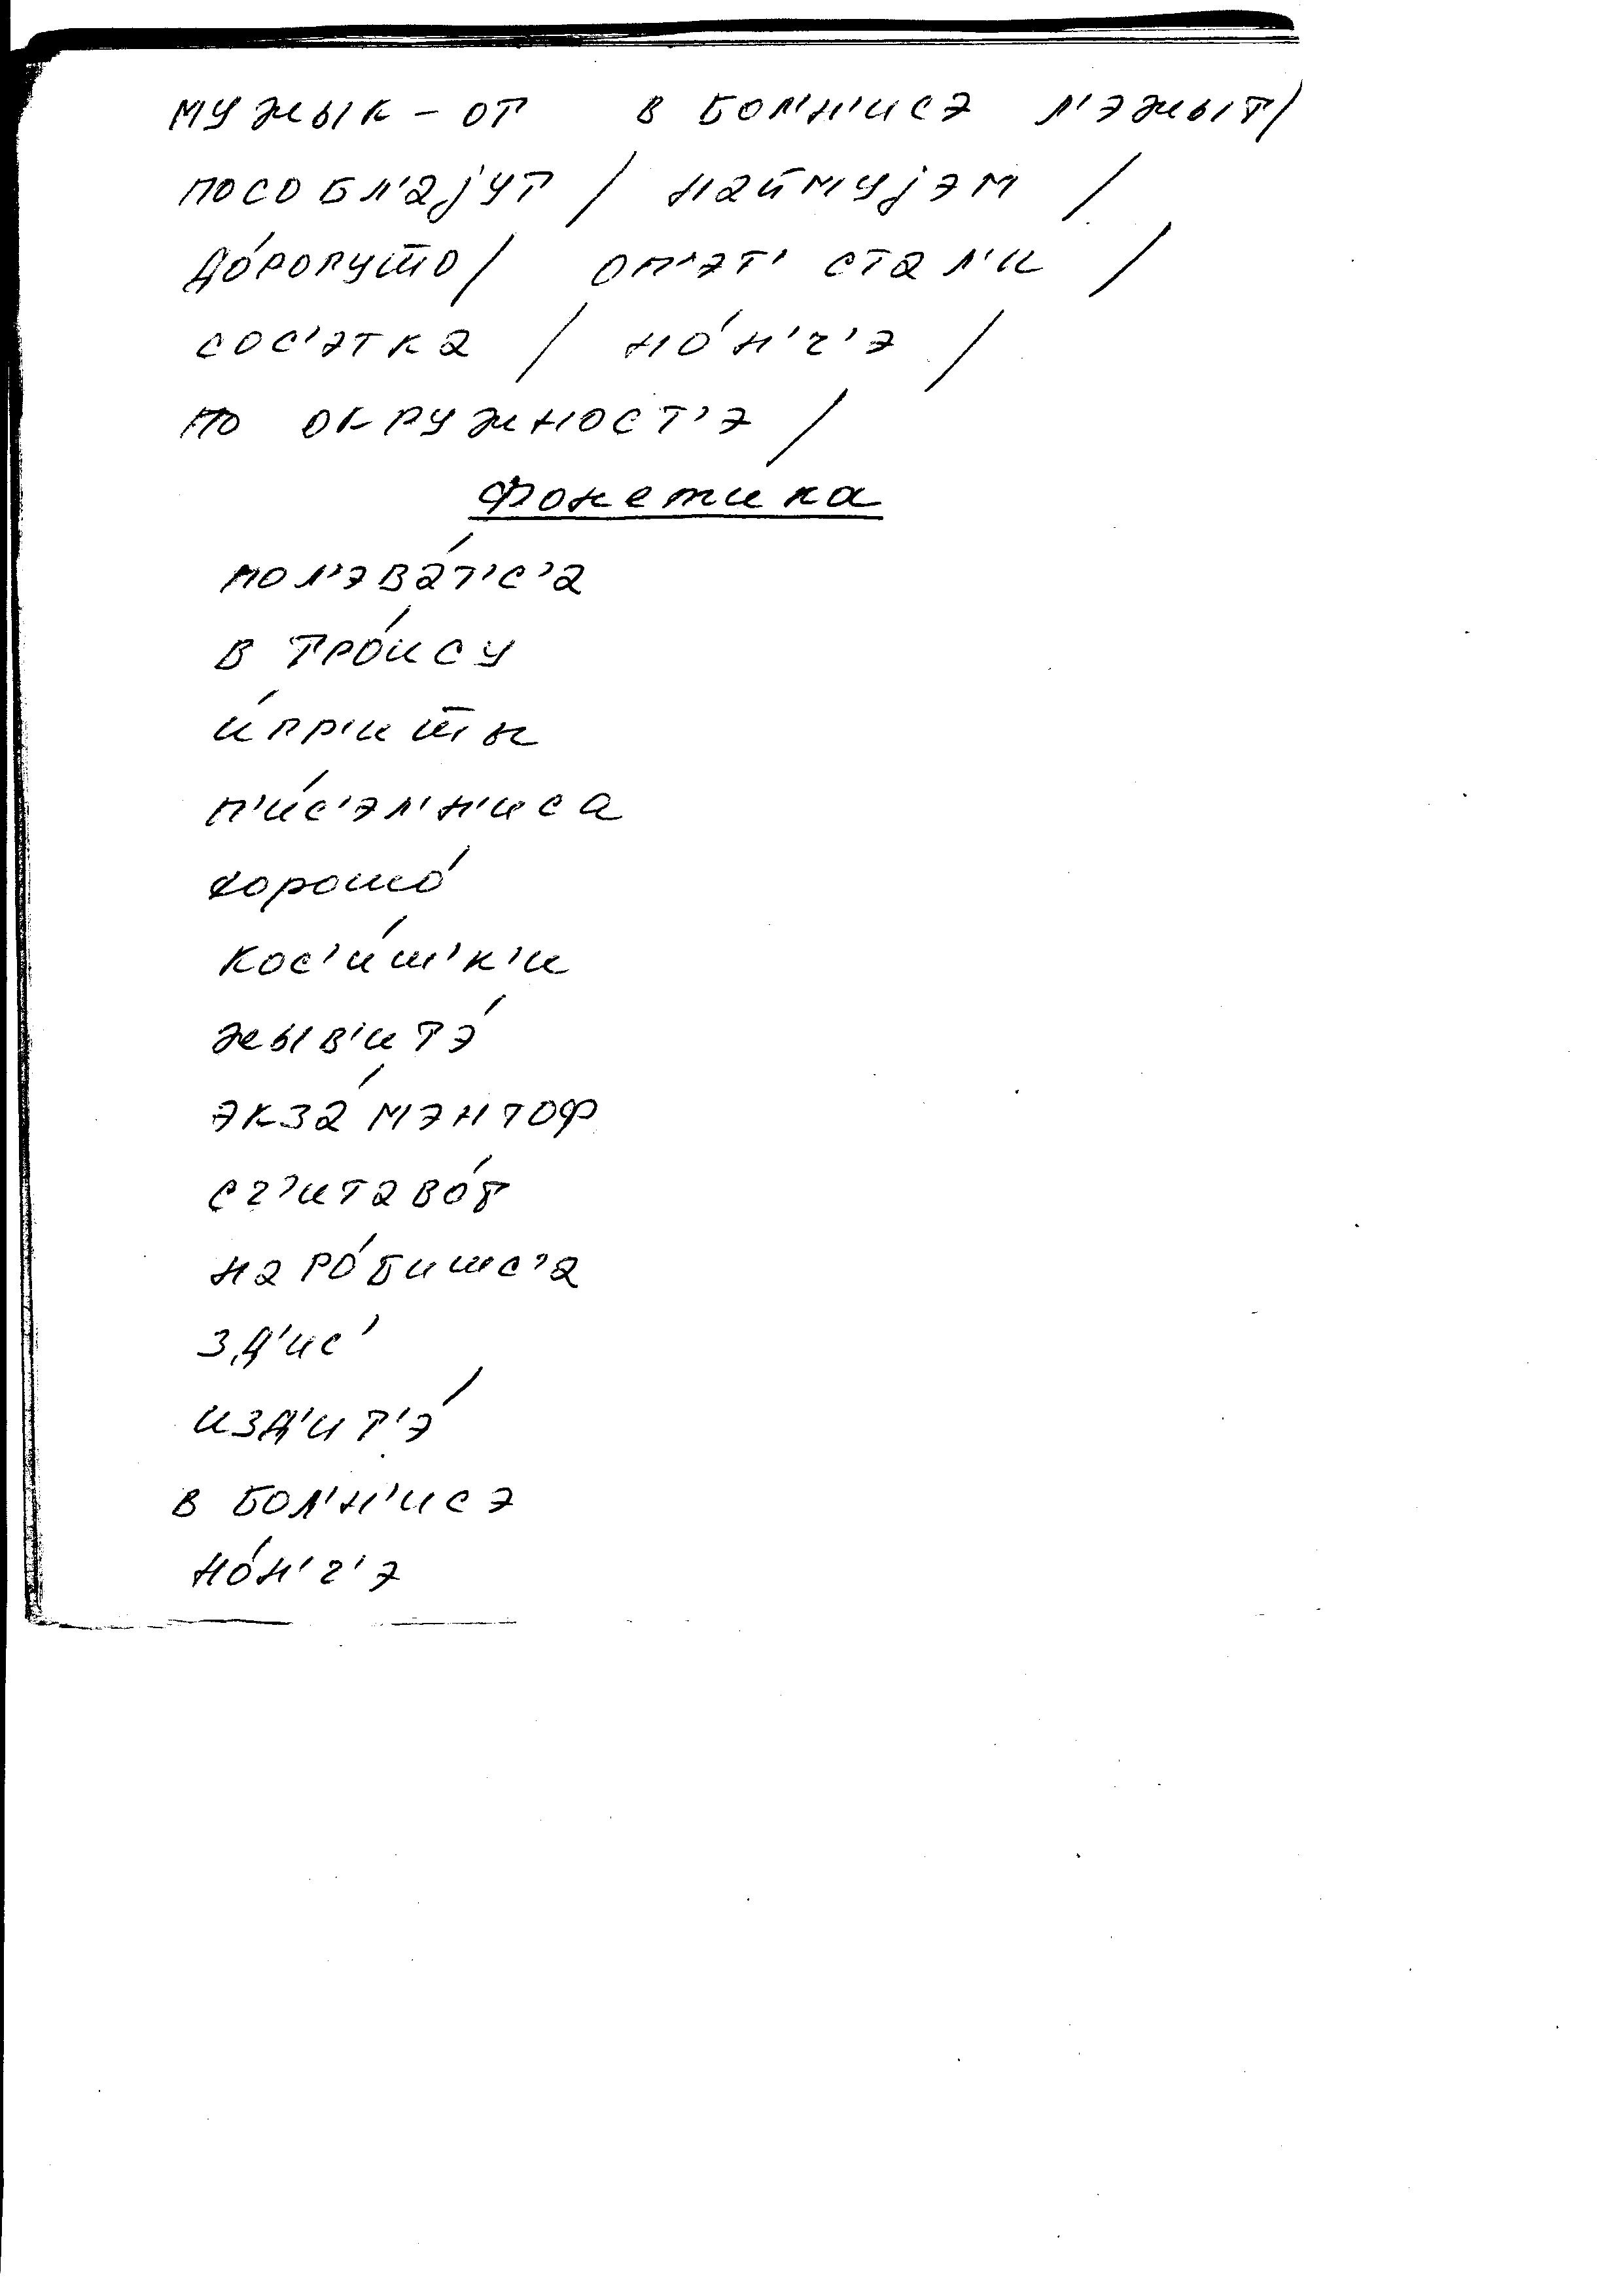 мужык-от в бол'н'исэ л'эжыт/
пособл'аjут / наймуjэм /
до́рогушто/ оп'эт' стал'и /
сос'этка / но́н'ч'э /
по окружност'э /
Фонетика
пол'эва́т'с'а
в тро́ису
и́гр'ишты
п'и́с'эл'н'иса
хорошо́
кос'и́ш'к'и
жыв'итэ́
экза́мэнтоф
сч'итаво́т
наро́бишс'а
зд'ис'
изд'ит'э́
в бол'н'исэ
но́н'ч'э